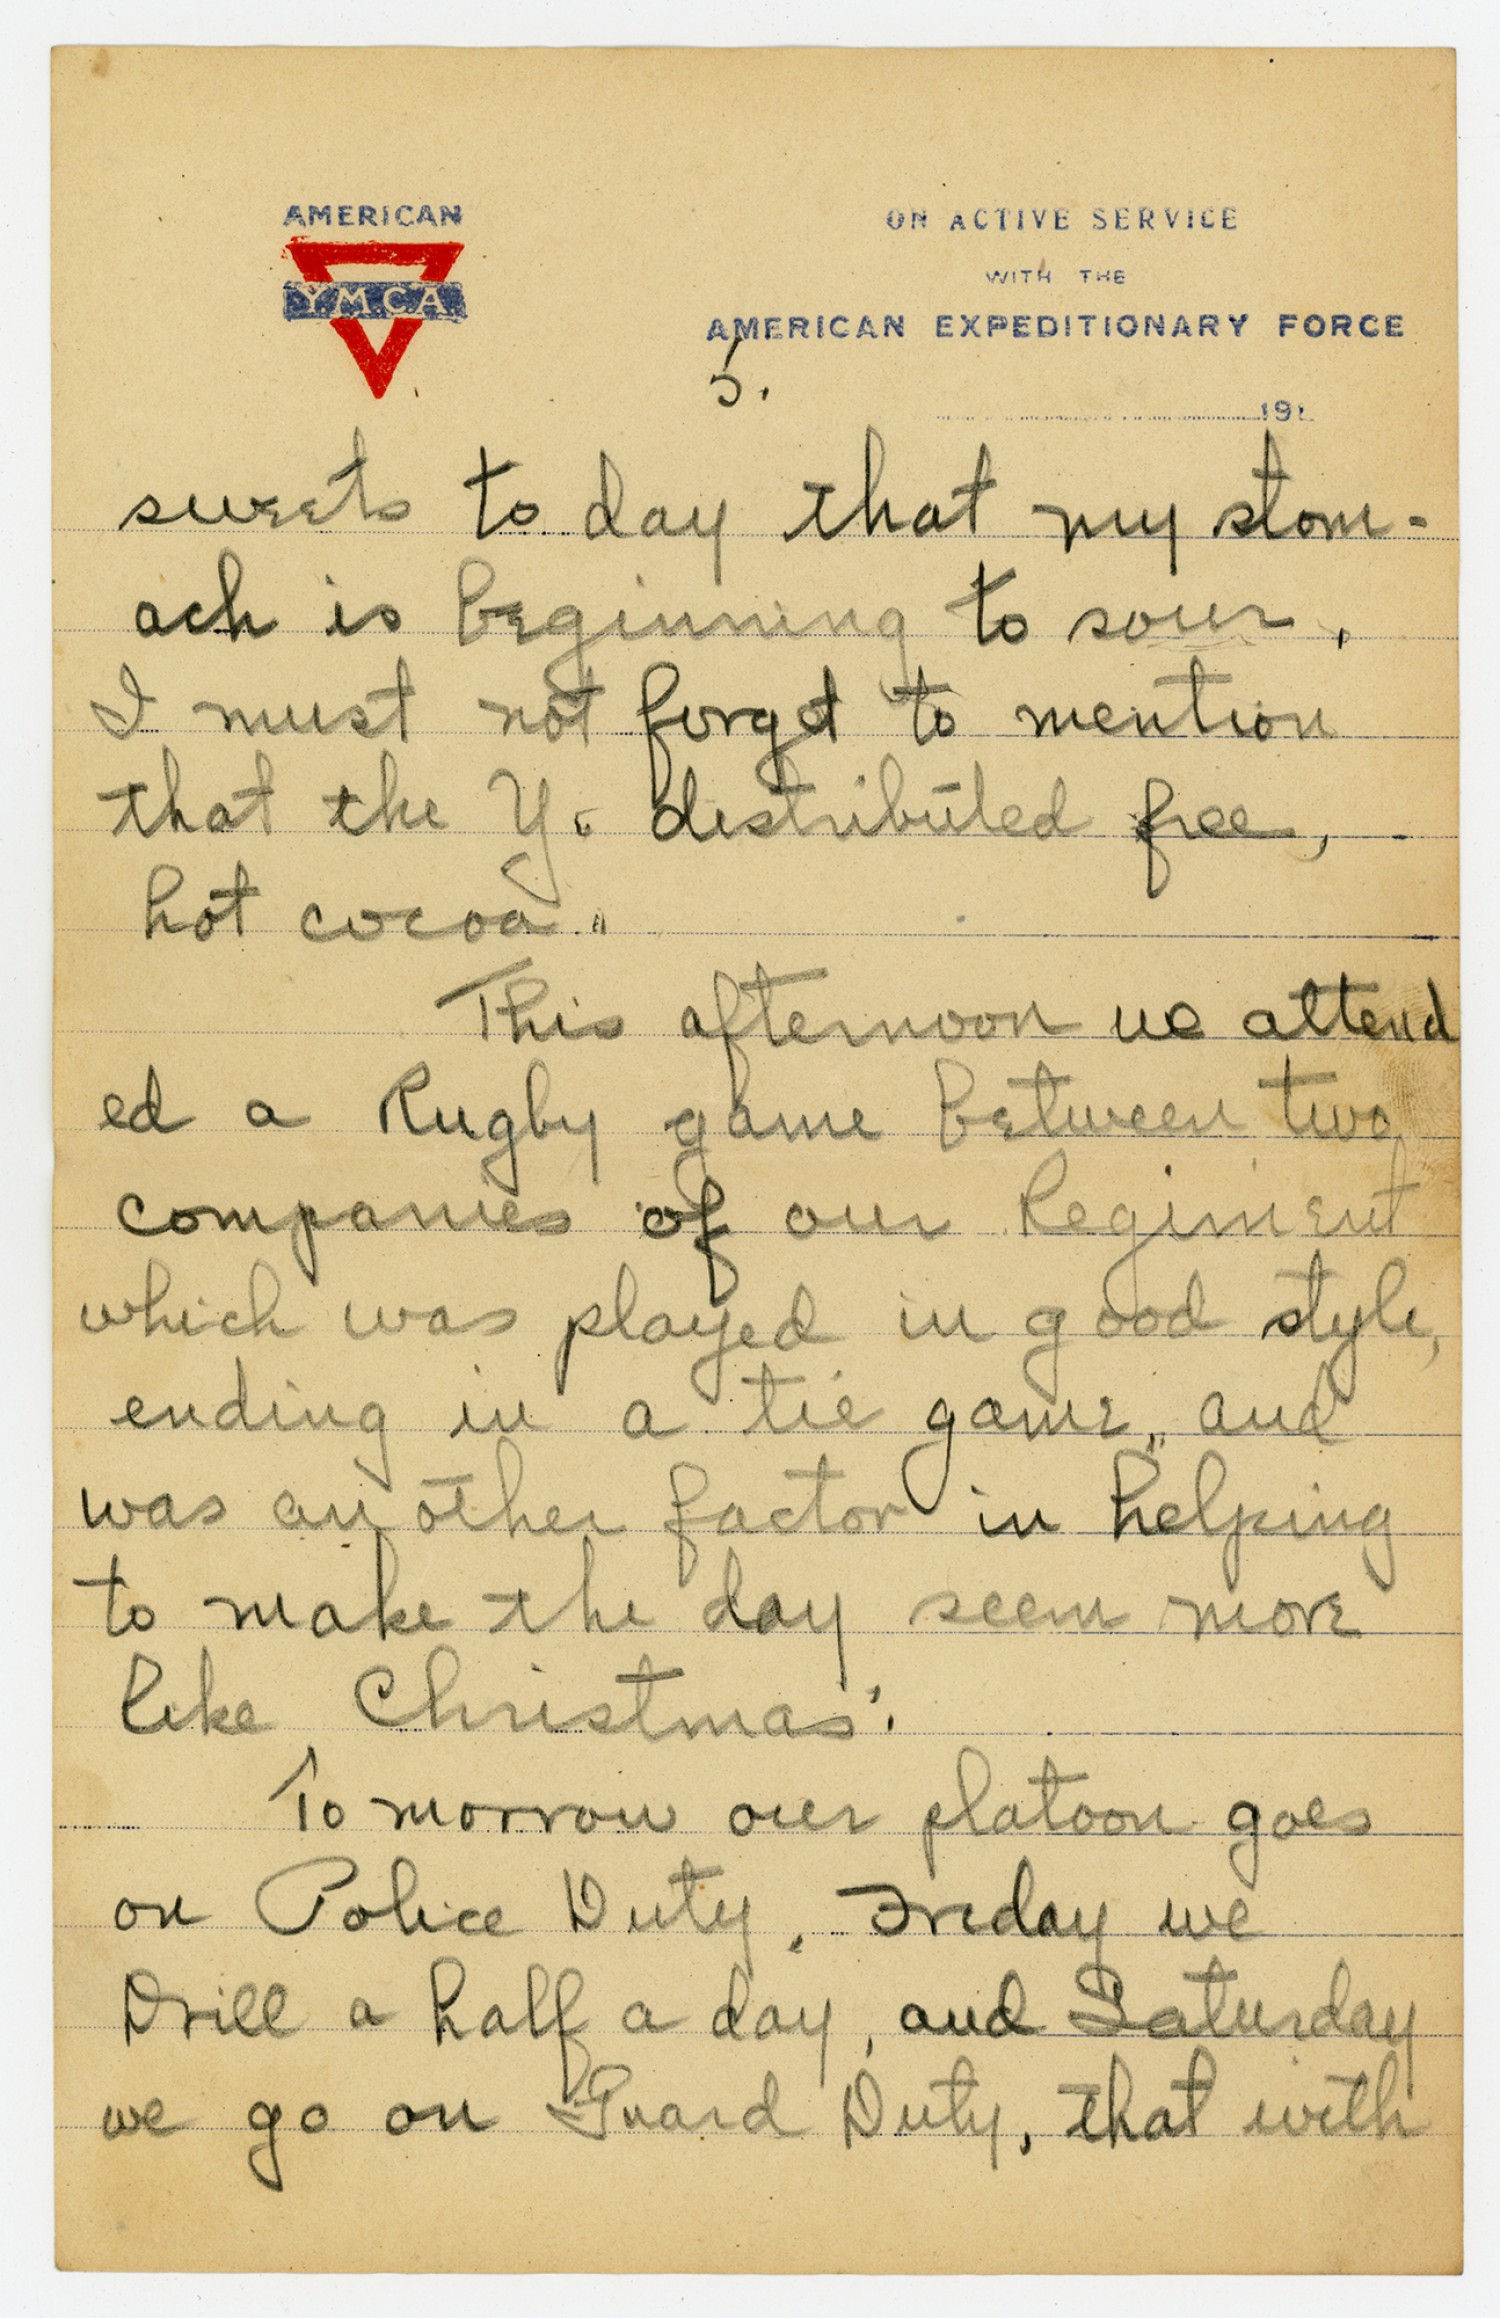 AMERICAN
Y.M.C.A.
ON ACTIVE SERVICE
WITH THE
AMERICAN EXPEDITIONARY FORCE
5.
191
sweets to day that my stom-
ach is beginning to sour.
I must not forget to mention
that the Y. distributed free,
hot cocoa.
This afternoon we attend
ed a Rugby game between two
companies of our Regiment
which was played in good style,
ending in a tie game, and
was another factor in helping
to make the day seem more
like Christmas.
Tomorrow our platoon goes
on Police Duty. Friday we
Drill a half a day, and Saturday
we go on Guard Duty, that with